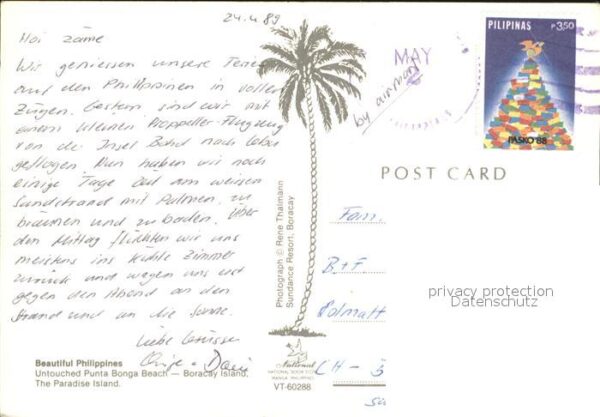 24.4.89
Hoi zäme
Wir geniessen unsere Ferien
auf den Philippinen in vollen
Zügen. Gestern sind wir mit
einem kleinen Propeller-Flugzeug
von der Insel Bohol nach Cebu
geflogen. Nun haben wir noch
einige Tage Zeit am weissen
Sandstrand mit Palmen zu
träumen und zu baden. Über
den Mittag flüchten wir uns
meistens ins kühle Zimmer
zurück und wagen uns erst
gegen den Abend an den
Strand und an die Sonne.
Liebe Grüsse
Beautiful Philippines
Untouched Punta Bonga Beach — Boracay Island,
The Paradise Island.
Photograph © Rene Thalmann
Sundance Resort, Boracay
National
NATIONAL BOOK STORE
MANILA, PHILIPPINES
VT-60288
MAY
by airmail
PILIPINAS
P3.50
PASKO '88
POST CARD
Fam.
B + F
CH - 3
privacy protection
Datenschutz